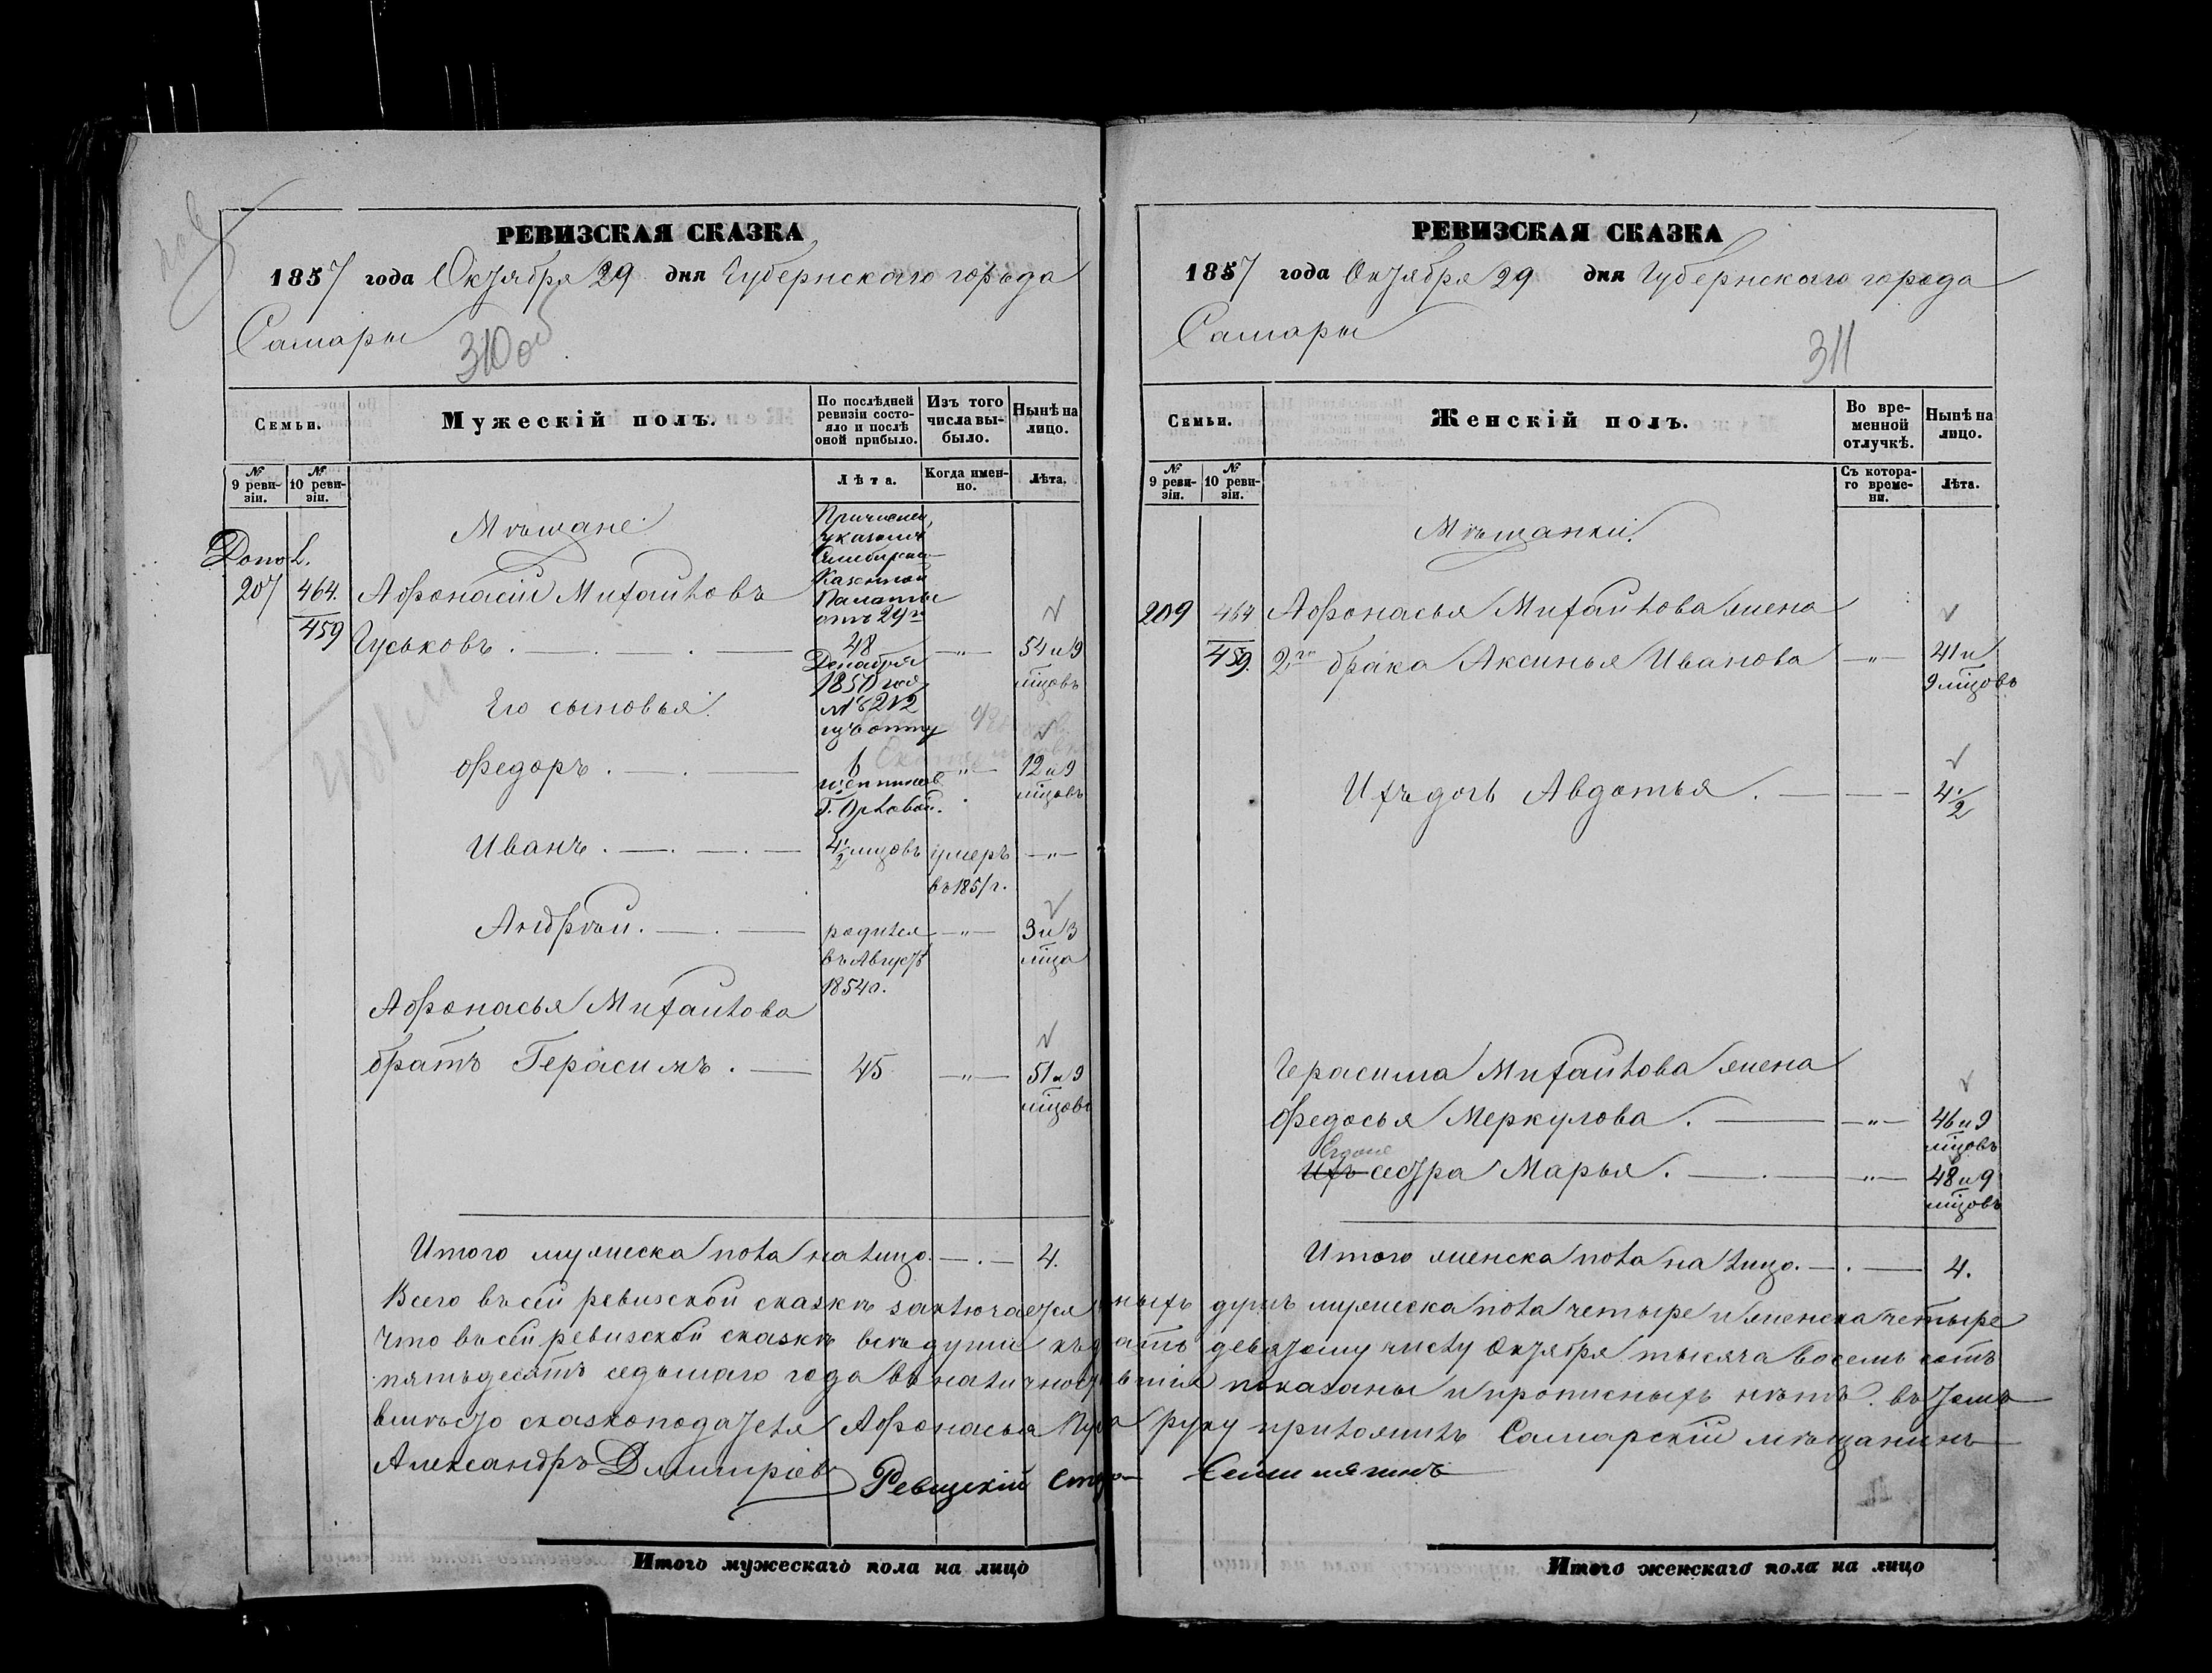 РЕВИЗСКАЯ СКАЗКА
1857 года Октября 29 дня Губернскаго города
Самары
310 об
Семьи.
Мужескій полъ.
По послѣдней ревизіи состояло и послѣ оной прибыло.
Изъ того числа выбыло.
Нынѣ на лицо.
№ 9 ревизіи.
№ 10 ревизіи.
Лѣта.
Когда именно.
Лѣта.
Мѣщане
Допол.
207
464.
459
Афонасій Михайловъ
Гуськовъ
Причислен,
указомъ
Симбирской
Казенной
Палаты
отъ 29го
48
Декабря
1850 года
№ 8212
54 и 9
мѣцовъ
Его сыновья:
Федоръ
6
12 и 9
мѣцовъ
Г. Орловой.
Иванъ
4 1/2 мѣцовъ
умеръ
въ 1851 г.
Андрѣй
родился
въ Августѣ
1854 г.
3 и 3
мѣца
Афонасья Михайлова
братъ Герасимъ
45
51 и 9
мѣцовъ
Итого мужеска пола на лицо
4.
РЕВИЗСКАЯ СКАЗКА
1857 года Октября 29 дня Губернскаго города
Самары
311
Семьи.
Женскій полъ.
Во временной отлучкѣ.
Нынѣ на лицо.
№ 9 ревизіи.
№ 10 ревизіи.
Съ котораго времени.
Лѣта.
Мѣщанки
209
464
459.
Афонасья Михайлова жена
2го брака Аксинья Иванова
41 и
9 мѣцовъ
Ихъ дочь Авдотья
4 1/2
Герасима Михайлова жена
Федосья Меркулова
46 и 9
мѣцовъ
Ихъ сестра Марья
48 и 9
мѣцовъ
Итого женска пола на лицо
4.
Всего въ сей ревизской сказкѣ заключается ныхъ душъ мужеска пола четыре и женска четыре
что въ сей ревизской сказкѣ всѣ души къ дватцать девятому числу Октября тысяча восемь сотъ
пятьдесятъ седьмаго года въ наличности показаны и прописныхъ нѣтъ. въ томъ
вмѣсто сказкоподателя Афонасья руку приложилъ Самарскій мѣщанинъ
Александръ Дмитріевъ
Ревизскій
Итого мужескаго пола на лицо
Итого женскаго пола на лицо